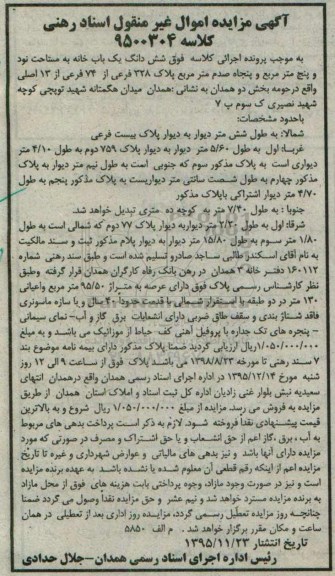 آگهی مزایده اموال غیر منقول اسناد رهنی
کلاسه ۹۵۰۰۳۰۴
به موجب پرونده اجرائی کلاسه فوق شش دانگ یک باب خانه به مساحت نود
و پنج متر مربع و پنجاه صدم متر مربع پلاک ۳۲۸ فرعی از ۷۴ فرعی از ۱۳ اصلی
واقع درحومه بخش دو همدان به نشانی :همدان میدان هگمتانه شهید توپچی کوچه
شهید نصیری ک سوم پ ۷
باحدود مشخصات:
شمالا: به طول شش متر دیوار به دیوار پلاک بیست فرعی
غربا: اول به طول ۵/۶۰ متر دیوار به دیوار پلاک ۷۵۹ دوم به طول ۴/۱۰ متر
دیواری است به پلاک مذکور سوم که جنوبی است به طول نیم متر دیوار به پلاک
مذکور چهارم به طول شصت سانتی متر دیواریست به پلاک مذکور پنجم به طول
۴/۷۰ متر دیوار اشتراکی باپلاک مذکور
جنوبا : به طول ۷/۴۰ متر به کوچه ده متری تبدیل خواهد شد.
شرقا: اول به طول ۲/۲۰ متر دیواربه دیوار پلاک ۷۷ دوم که شمالی است به طول
۱/۸۰ متر سوم به طول ۱۵/۸۰ متر دیوار به دیوار پلام مذکور ثبت و سند مالکیت
به نام آقای اسکندر طالبی ساجد صادرو تسلیم شده است و طبق سند رهنی شماره
۱۶۰۱۱۲ دفتر خانه ۳ همدان در رهن بانک رفاه کارگران همدان قرار گرفته وطبق
نظر کارشناس رسمی پلاک فوق دارای عرصه به متراژ ۹۵/۵۰ متر مربع واعیانی
۱۳۰ متر در دو طبقه با استقرار شمالی با قدمت حدودا ۴۰ سال و با سازه ماسونری
فاقد شناژ بندی و سقف طاق ضربی دارای انشعابات برق گاز و آب- نمای سیمانی
- پنجره های تک جداره با پروفیل آهنی کف حیاط از موزائیک می باشد و به مبلغ
۱/۰۵۰/۰۰۰/۰۰۰ریال ارزیابی گردید ضمنا پلاک مذکور دارای بیمه نامه موضوع بند
۷ سند رهنی تا مورخه ۱۳۹۸/۸/۲۳ می باشد پلاک فوق از ساعت ۹ الی ۱۲ روز
شنبه مورخ ۱۳۹۵/۱۲/۱۴ در اداره اجرای اسناد رسمی همدان واقع درهمدان انتهای
سعیدیه نبش بلوار غنی زادیان اداره کل ثبت اسناد و املاک استان همدان از طریق
مزایده به فروش می رسد. مزایده از مبلغ ۱/۰۵۰/۰۰۰/۰۰۰ ریال شروع و به بالاترین
قیمت پیشنهادی نقدا فروخته شود. لازم به ذکر است پرداخت بدهی های مربوط
به آب ، برق ،گاز اعم از حق انشعاب و یا حق اشتراک و مصرف در صورتی که مورد
مزایده دارای آنها باشد و نیز بدهی های مالیاتی و عوارض شهرداری و غیره تا تاریخ
مزایده اعم از اینکه رقم قطعی آن معلوم شده یا نشده باشد به عهده برنده مزایده
است و نیز در صورت وجود مازاد، وجوه پرداختی بابت هزینه های فوق از محل مازاد
به برنده مزایده مسترد خواهد شد و نیم عشر و حق مزایده نقدا وصول می گردد ضمنا
چنانچه روز مزایده تعطیل رسمی گردد، مزایده روز اداری بعد از تعطیلی در همان
ساعت و مکان مقرر برگزار خواهد شد . م الف ۵۸۵۰
تاریخ انتشار ۱۳۹۵/۱۱/۲۳
رئیس اداره اجرای اسناد رسمی همدان-جلال حدادی